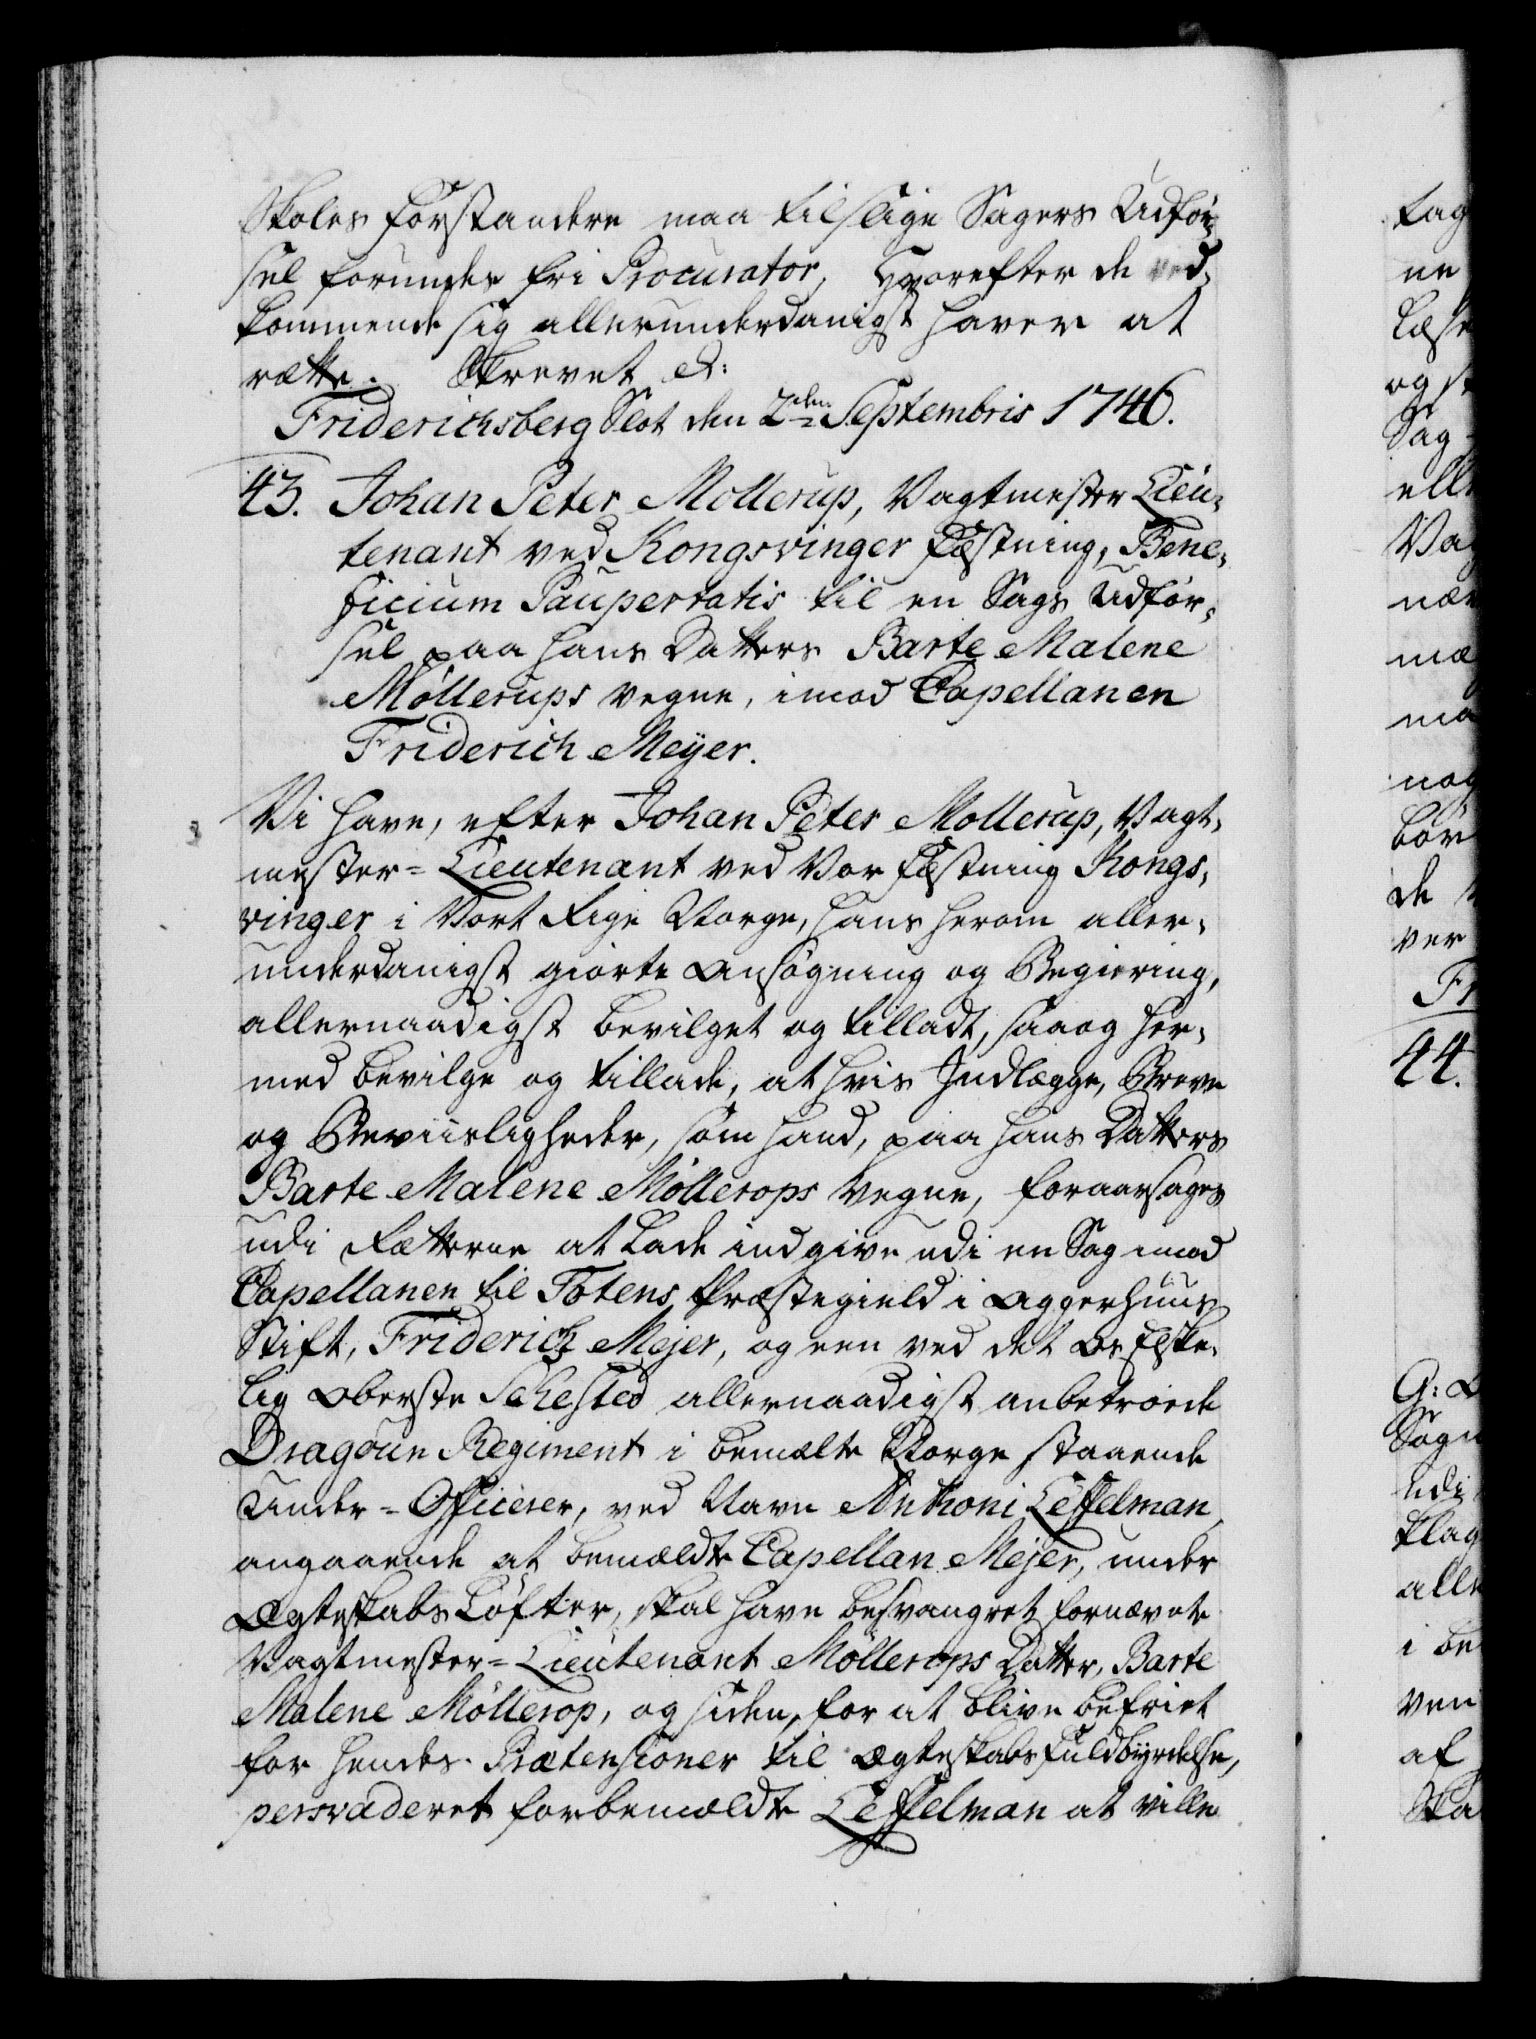 Skoles Forstandere maa til slige Sagers Udfør-
sel forundes fri Procurator, Hvorefter de ved-
kommende sig allerunderdanigst haver at
rætte. Skrevet &:
Friderichsberg Slot den 2den Septembris 1746.
43. Johan Peter Mollerup, Vagtmester Lieu-
tenant ved Kongsvinger Fæstning, Bene-
ficium Paupertatis til en Sags Udfør-
sel paa hans Datters Barte Malene
Møllerups vegne, imod Capellanen
Friderich Meyer.
Vi have, efter Johan Peter Mollerup, Vagt-
mester-Lieutenant ved Vor Fæstning Kongs-
vinger i Vort Rige Norge, hans herom aller-
underdanigst giorte Ansøgning og Begiering,
allernaadigst bevilget og tilladt, saa og her-
med bevilge og tillade, at hvis Indlægge, Breve
og Beviisligheder, som hand, paa hans Datters
Barte Malene Møllerops Vegne, foraarsages
udi Rætterne at lade indgive udi en Sag imod
Capellanen til Totens Præstegield i Aggerhuus
Stift, Friderich Mejer, og een ved det Os Elske-
lig Oberste Sehested allernaadigst anbetroede
Dragoun Regiment i bemælte Norge staaende
Under-Officerer, ved Navn Anthoni Leffelman,
angaaende at bemældte Capellan Mejer, under
Ægteskabs Løfter, skal have besvangret fornævnte
Vagtmester-Lieutenant Møllerops Datter, Barte
Malene Møllerop, og siden, for at blive befriet
for hendes Prætensioner til Ægteskabs Fuldbyrdelse,
persvaderet forbemældte Leffelman at ville
tag
ne
og
Sag
Vag
mæ
ma
nog
de
ver
Fr
44.
G:
Sogn
udi
klag
alle
i be
ven
af
Ska